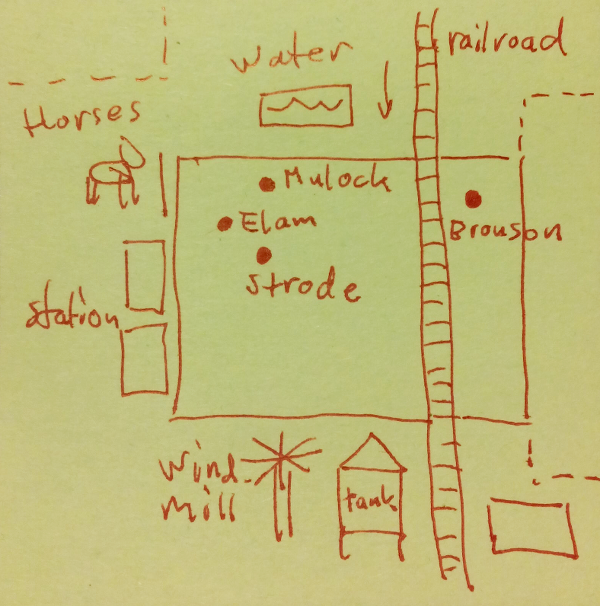 water
railroad
Horses
Mulock
Elam
Bronson
Strode
Station
Wind-
mill
tank